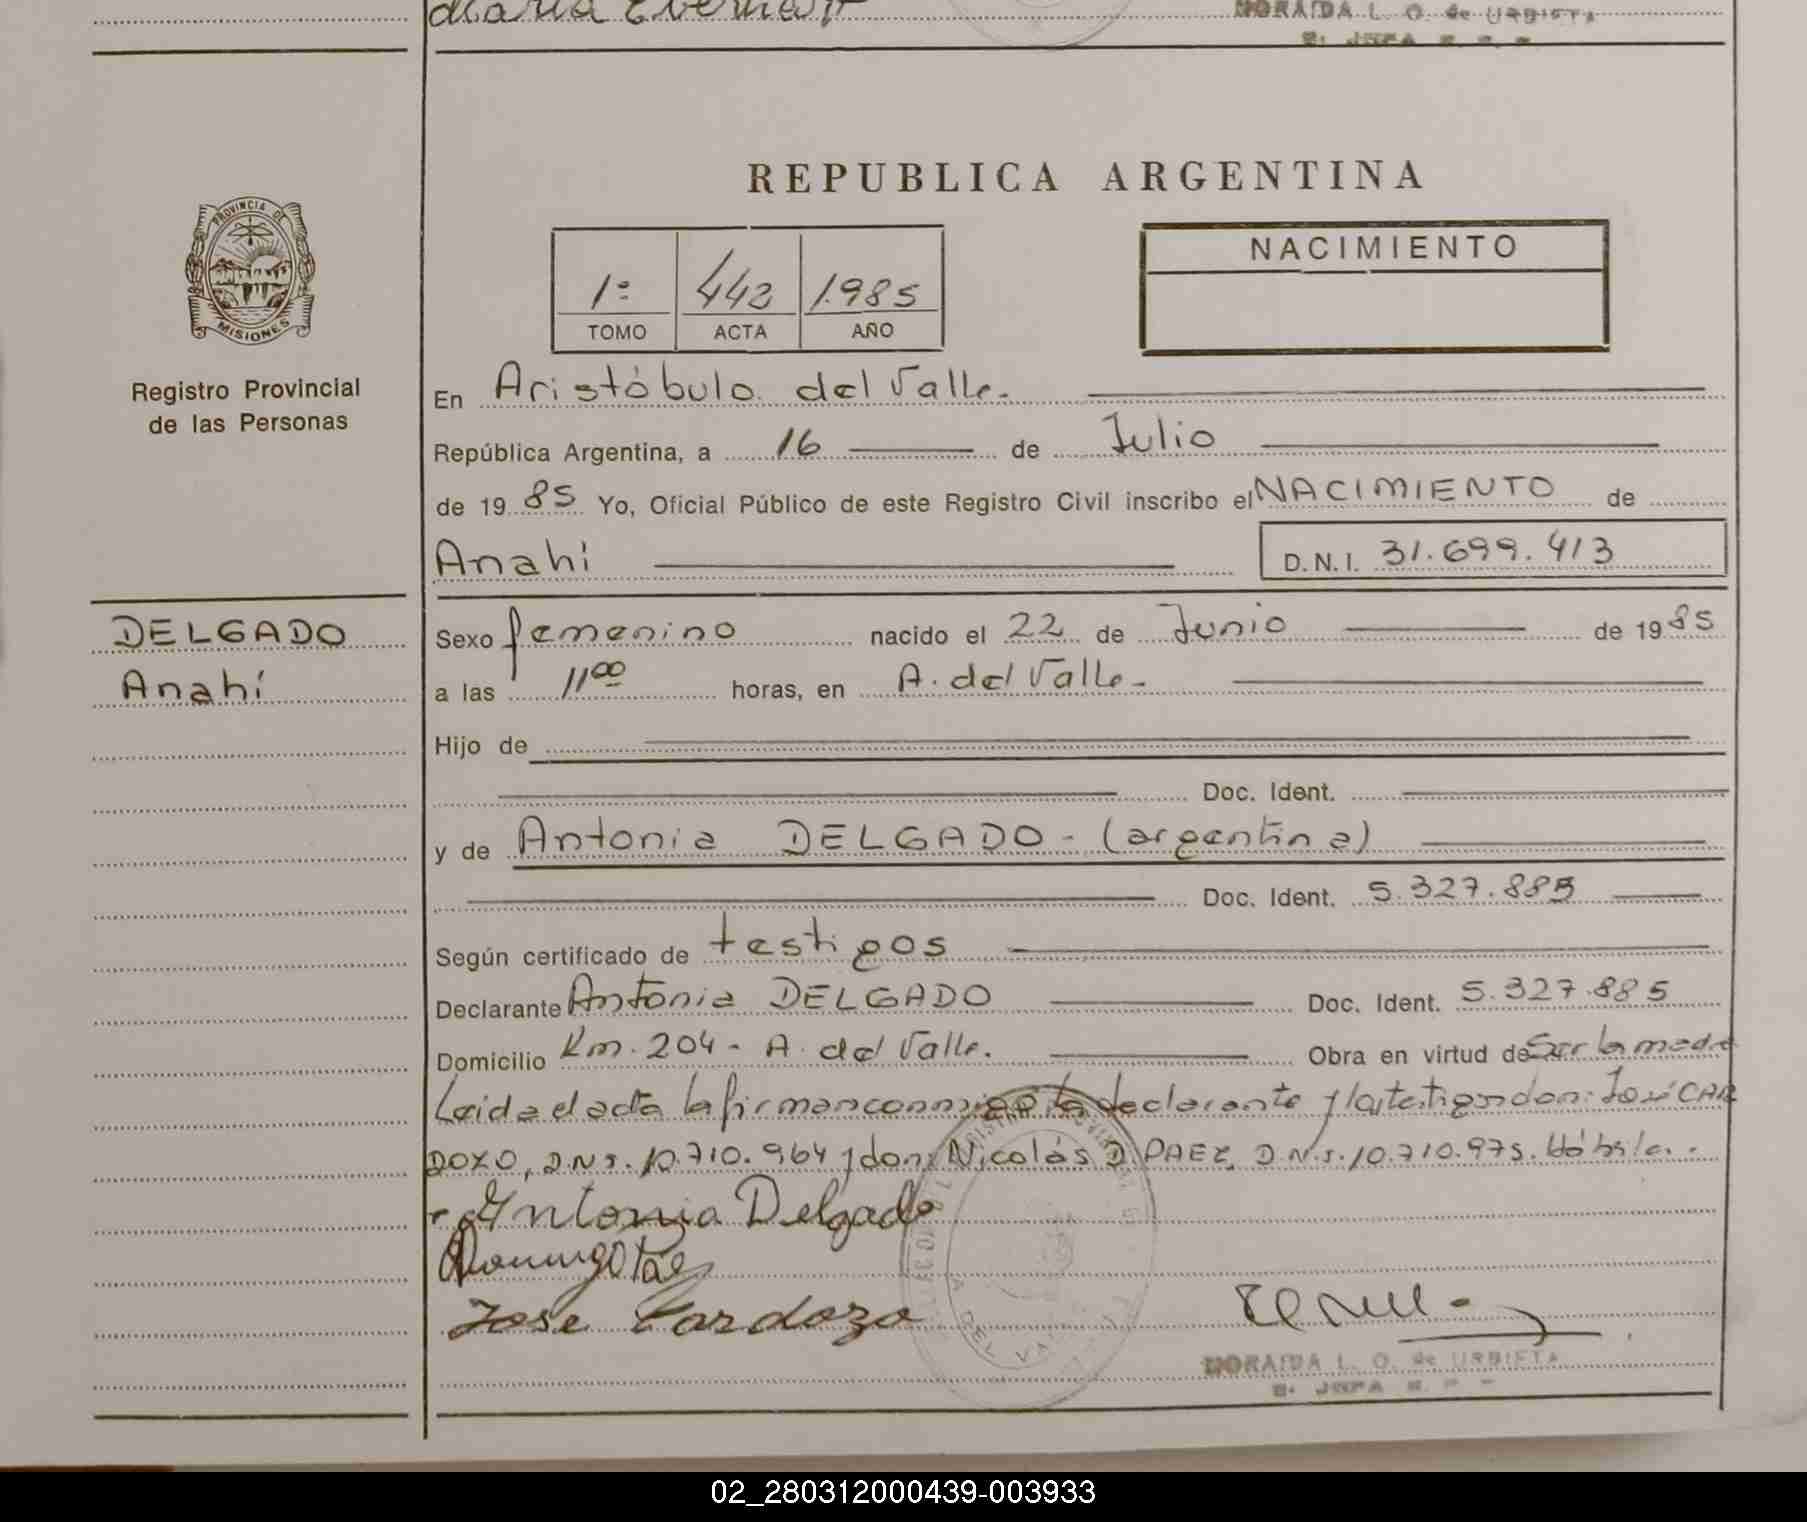 María
NORAIDA L. O. de URBIETA
REPUBLICA ARGENTINA
PROVINCIA DE
MISIONES
Registro Provincial
de las Personas
1º 442 1.985
TOMO ACTA AÑO
NACIMIENTO
En Aristóbulo del Valle.
República Argentina, a 16 de Julio
de 19 85 Yo, Oficial Público de este Registro Civil inscribo el NACIMIENTO de
Anahí D.N.I. 31.699.413
DELGADO
Anahí
Sexo femenino nacido el 22 de Junio de 19 85
a las 11 00 horas, en A. del Valle.
Hijo de
Doc. Ident.
y de Antonia DELGADO - (argentina)
Doc. Ident. 5.327.885
Según certificado de testigos
Declarante Antonia DELGADO Doc. Ident. 5.327.885
Domicilio Km. 204 - A. del Valle. Obra en virtud de Ser la madre
Leida el acta la firman conmigo la declarante y los testigos don: José CAR
DOZO, D.N.I. 10.710.964 y don: Nicolás D. PAEZ, D.N.I. 10.710.975. Hábiles.
Antonia Delgado
Domingo Paez
Jose Cardozo
A DEL VALLE
NORAIDA L. O. de URBIETA
02_280312000439-003933